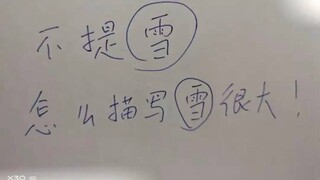 不提雪
怎么描写雪很大!
X30